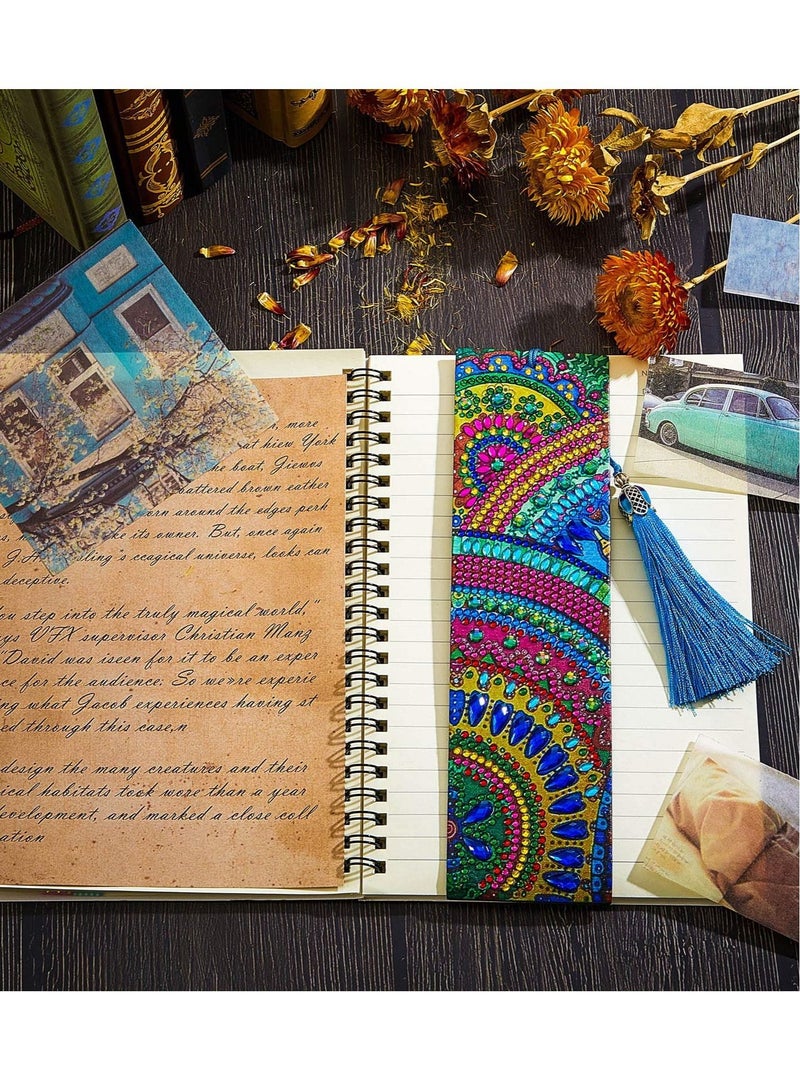 , more
at hiew York
he boat, Giewos
battered brown eather
orn around the edges perh
ke its owner. But, once again
J.H sling's ccagical universe, looks can
deceptive.
ou step into the truly magical world,"
ys VFX supervisor Christian Manz
"David was iseen for it to be an exper
ce for the audience: So we»re experie
ng what Jacob experiences having st
ed through this case,n
design the many creatures and their
ical habitats took wose than a year
evelopment, and marked a close coll
ation